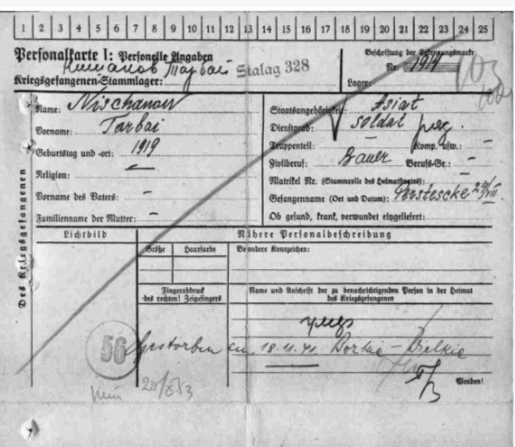 1 2 3 4 5 6 7 8 9 10 11 12 13 14 15 16 17 18 19 20 21 22 23 24 25
Personalkarte I: Personelle Angaben
Beschriftung der Erkennungsmarke
Нишанов Тарбай
Nr. 1914
Kriegsgefangenen-Stammlager: Stalag 328
Lager:
Des Kriegsgefangenen
Name: Nischanow
Vorname: Tarbai
Geburtstag und -ort: 1919
Religion: —
Vorname des Vaters: —
Familienname der Mutter: —
Staatsangehörigkeit: Asiat
Dienstgrad: Soldat
Truppenteil: Komp. usw.: —
Zivilberuf: Bauer Berufs-Gr.: —
Matrikel Nr. (Stammrolle des Heimatstaates): —
Gefangenname (Ort und Datum):
Ob gesund, krank, verwundet eingeliefert:
Lichtbild
Nähere Personalbeschreibung
Größe Haarfarbe Besondere Kennzeichen:
Fingerabdruck des rechten! Zeigefingers
Name und Anschrift der zu benachrichtigenden Person in der Heimat des Kriegsgefangenen
умер
56
gestorben am 18.11.41
Wenden!